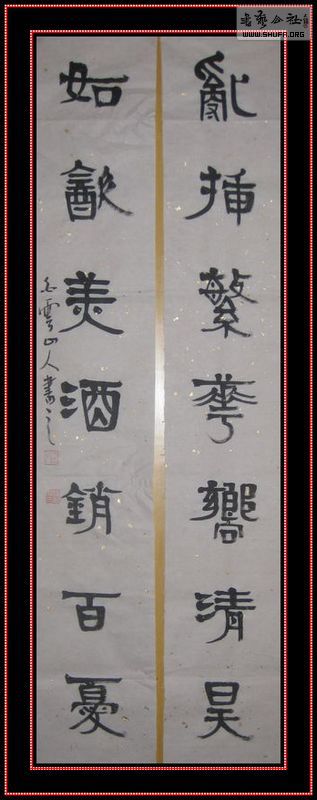 亂插繁華嚮清昊
如㱃美酒銷百憂
白雲山人書之
書藝公社
WWW.SHUFA.ORG